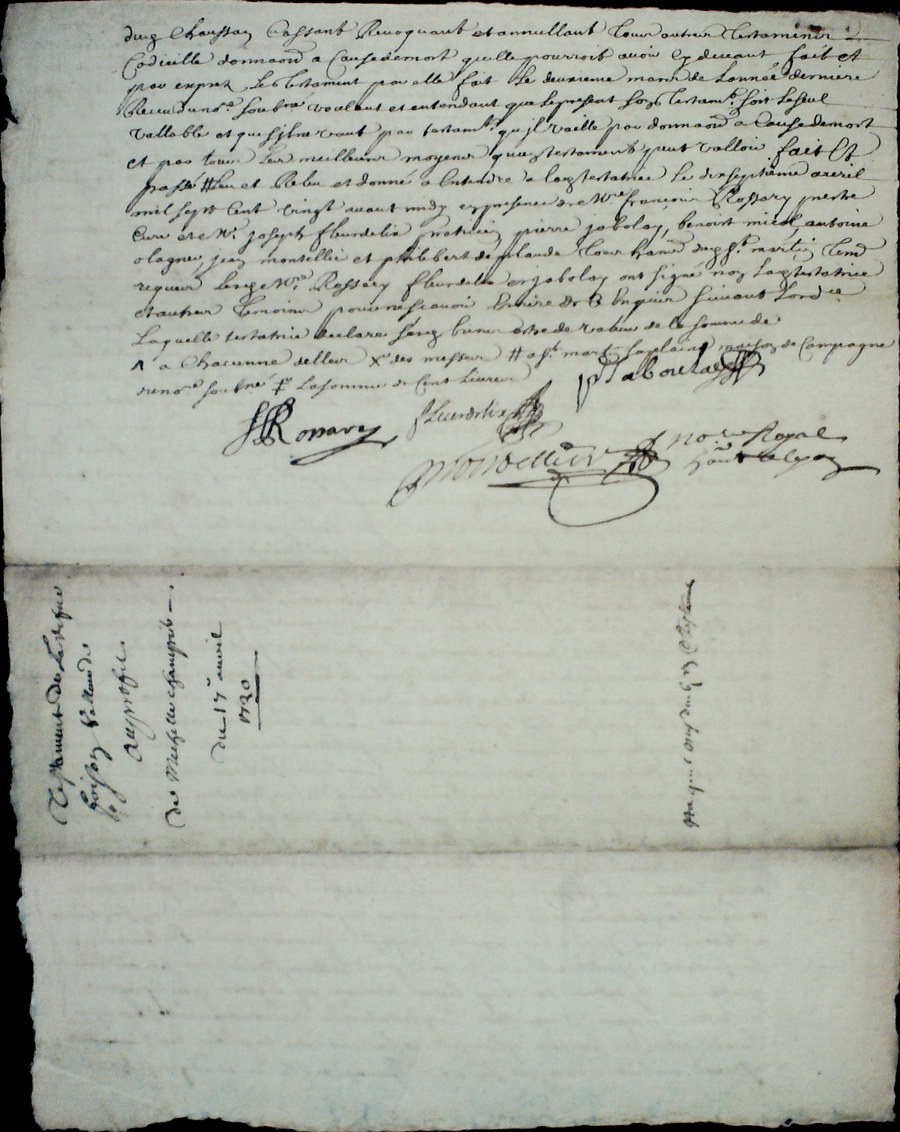 dud Chaussay Cassant Revoquant et annullant tous autres testaments
Codicille donnaon a Cause de mort qu'elle pourroit avoir cy devant fait et
par exprez le testament par elle fait le deuxieme mars de l'année derniere
Receu no.re soubné voulant et entendant que le present son testam.t soit le seul
vallable et que s'il ne vaut par testam.t qu'il vaille par donnaon a Cause de mort
et par tous les meilleurs moyens que testament peut valloir fait et
passé # leu et Releu et donné a Entendre a lad testatrice le dixseptieme avril
mil sept Cent vingt avant midy en presence de M.re françois Rossary prestre
Curé et M.e joseph fleurdelix praticien pierre jabolay, benoist micol, antoine
olagnier, jean montellier et philibert tous hans dud S.t martin
requeu lesd M.re Rossary fleurdelix et jabolay ont signé non lad testatrice
et autres temoins pour ne sçavoir Ecrire de ce Enquis suivant l'ord.ce
Laquelle testatrice declare ses biens estre de valeur de la somme de
^ a Chacunne d'elles x des messes # a S.t martin la plaine maison de Campagne
de no.re soubné la somme de Cent Livres
jaboulay
Rossary fleurdelix
Montellier no.re Royal
Testament de
Au proffit
de Michelle
du 17 avril
1720